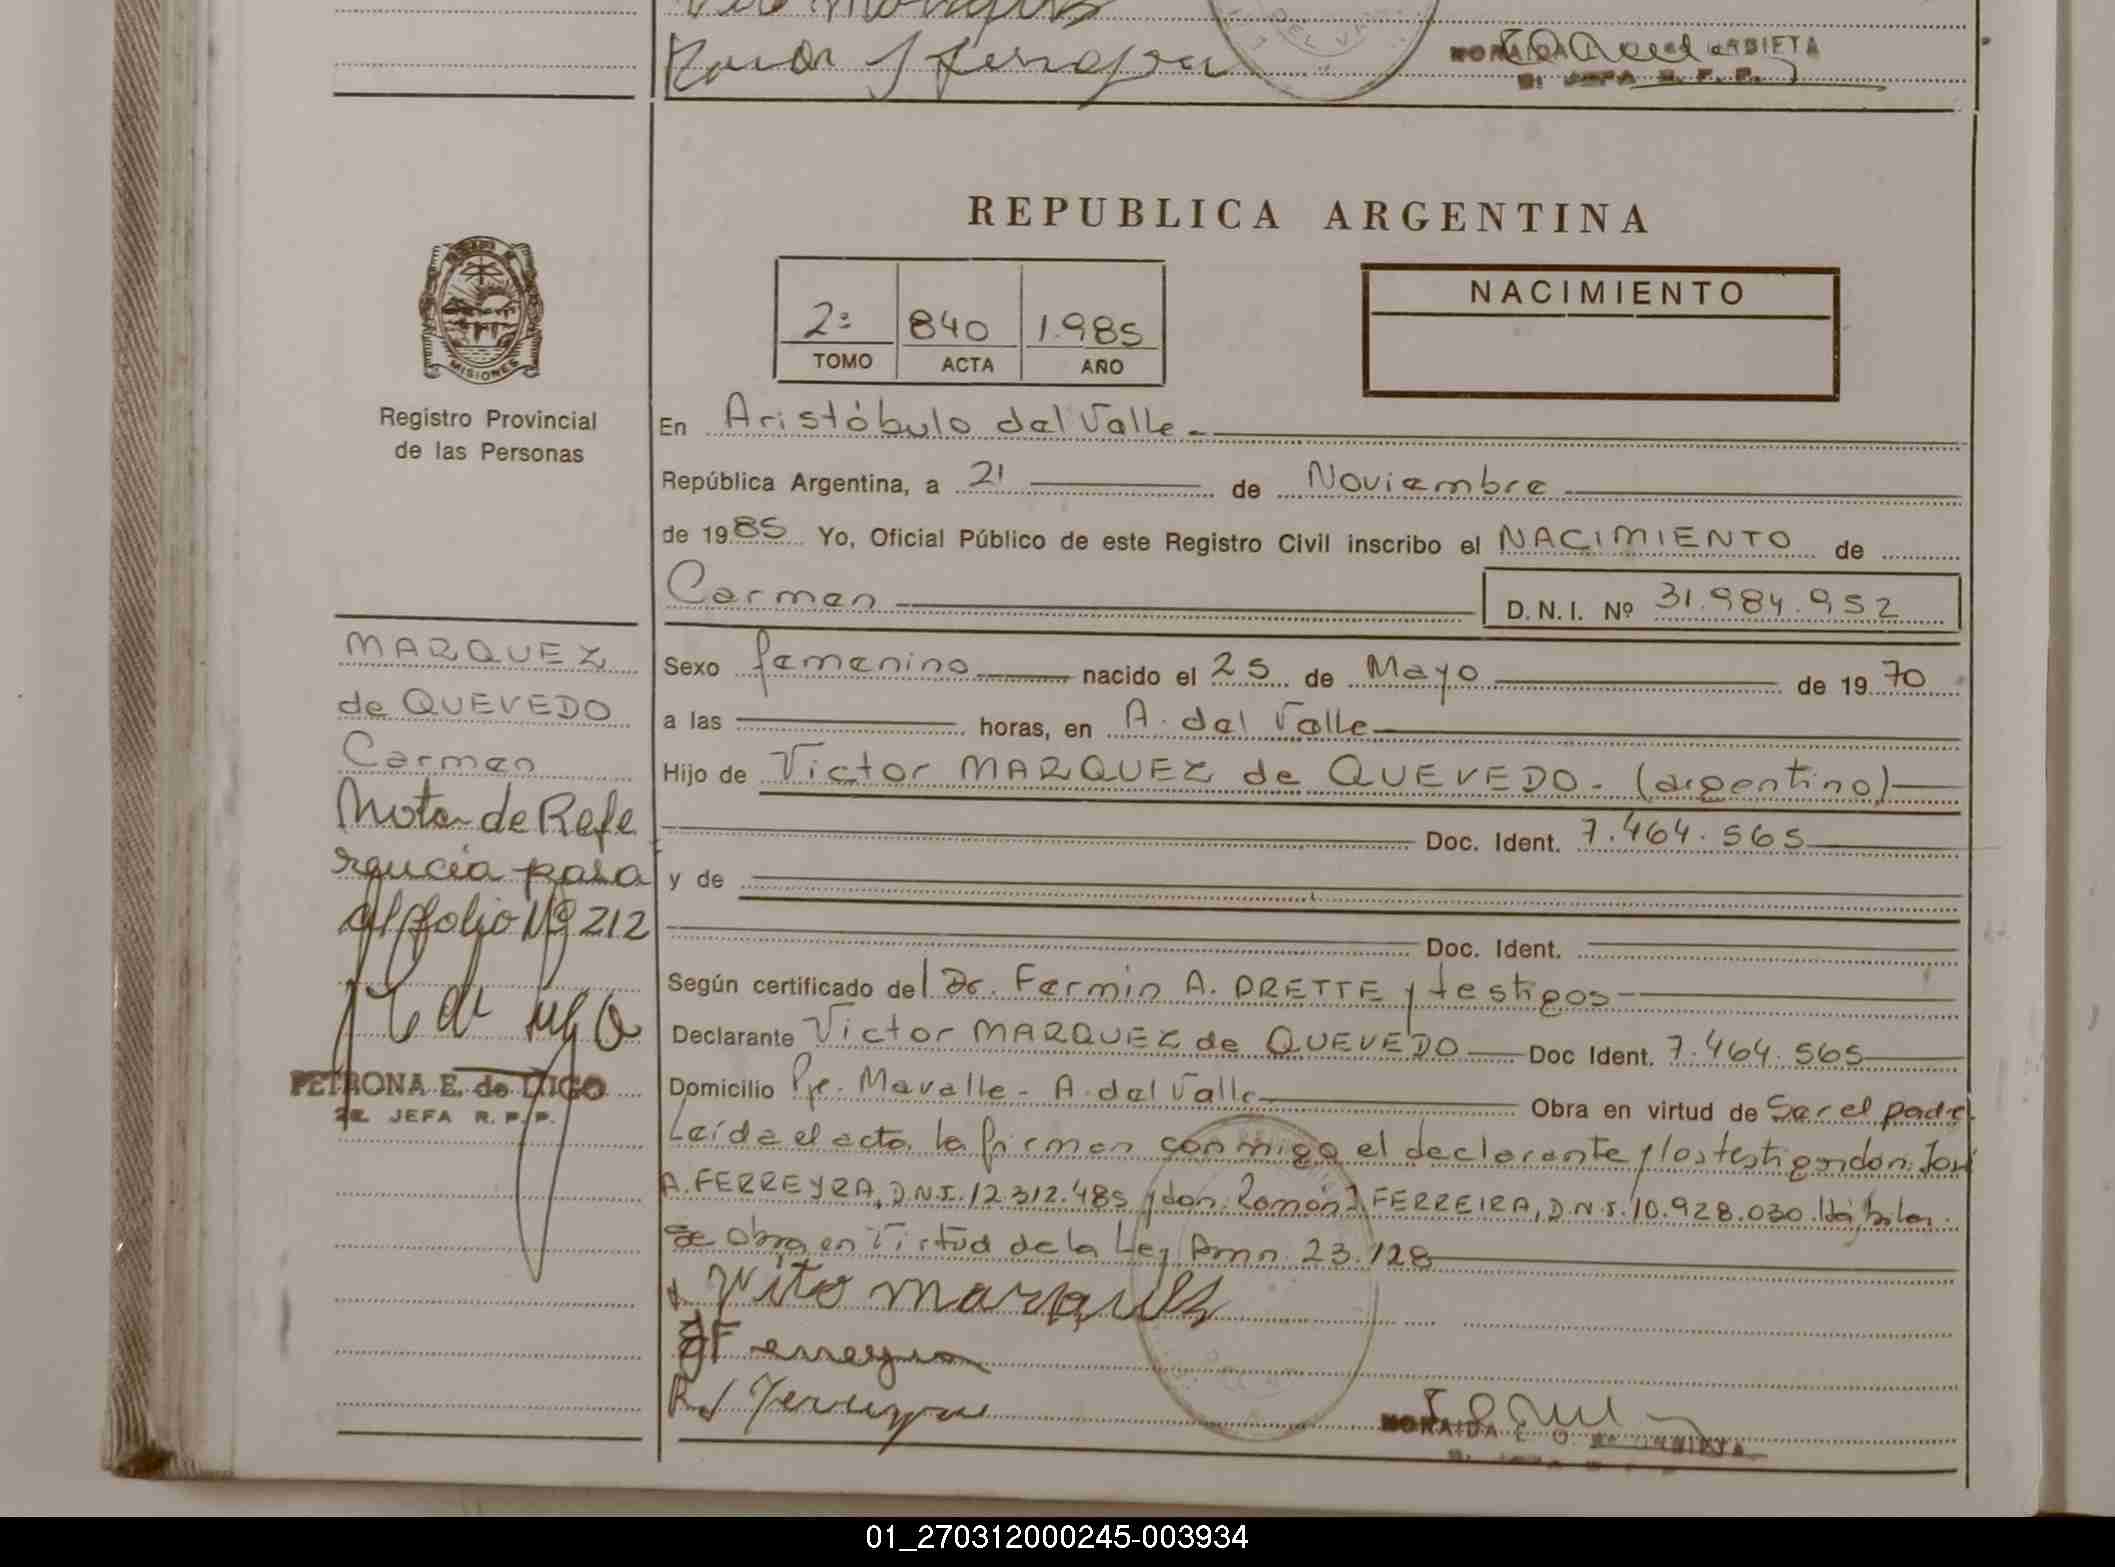 REPUBLICA ARGENTINA
MISIONES
Registro Provincial
de las Personas
2º 840 1.985
TOMO ACTA AÑO
NACIMIENTO
En Aristóbulo del Valle
República Argentina, a 21 de Noviembre
de 1985 Yo, Oficial Público de este Registro Civil inscribo el NACIMIENTO de
Carmen D.N.I. Nº 31.984.952
MARQUEZ
de QUEVEDO
Carmen
Nota de Refe
rencia para
el folio Nº 212
PETRONA E. de LUGO
2ª JEFA R.P.P.
Sexo femenino nacido el 25 de Mayo de 1970
a las horas, en A. del Valle
Hijo de Victor MARQUEZ de QUEVEDO - (argentino)
Doc. Ident. 7.464.565
y de
Doc. Ident.
Según certificado del Dr. Fermin A. DRETTE y testigos
Declarante Victor MARQUEZ de QUEVEDO Doc Ident. 7.464.565
Domicilio Pje. Mavalle - A. del Valle Obra en virtud de Ser el padre
Leída el acta la firman conmigo el declarante y los testigos don: José
A. FERREYRA, D.N.I. 12.312.485 y don: Ramón FERREIRA, D.N.I. 10.928.030. Hábiles.
Se obra en Virtud de la Ley Amn. 23.128
Vito Marques
Ferreyra
R. J Ferreyra
NORAIDA
01_270312000245-003934